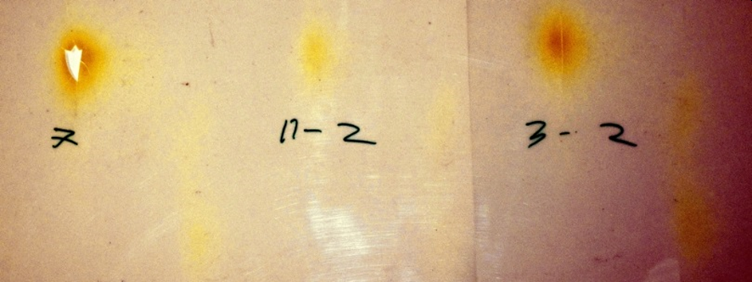 7
11-2
3-2